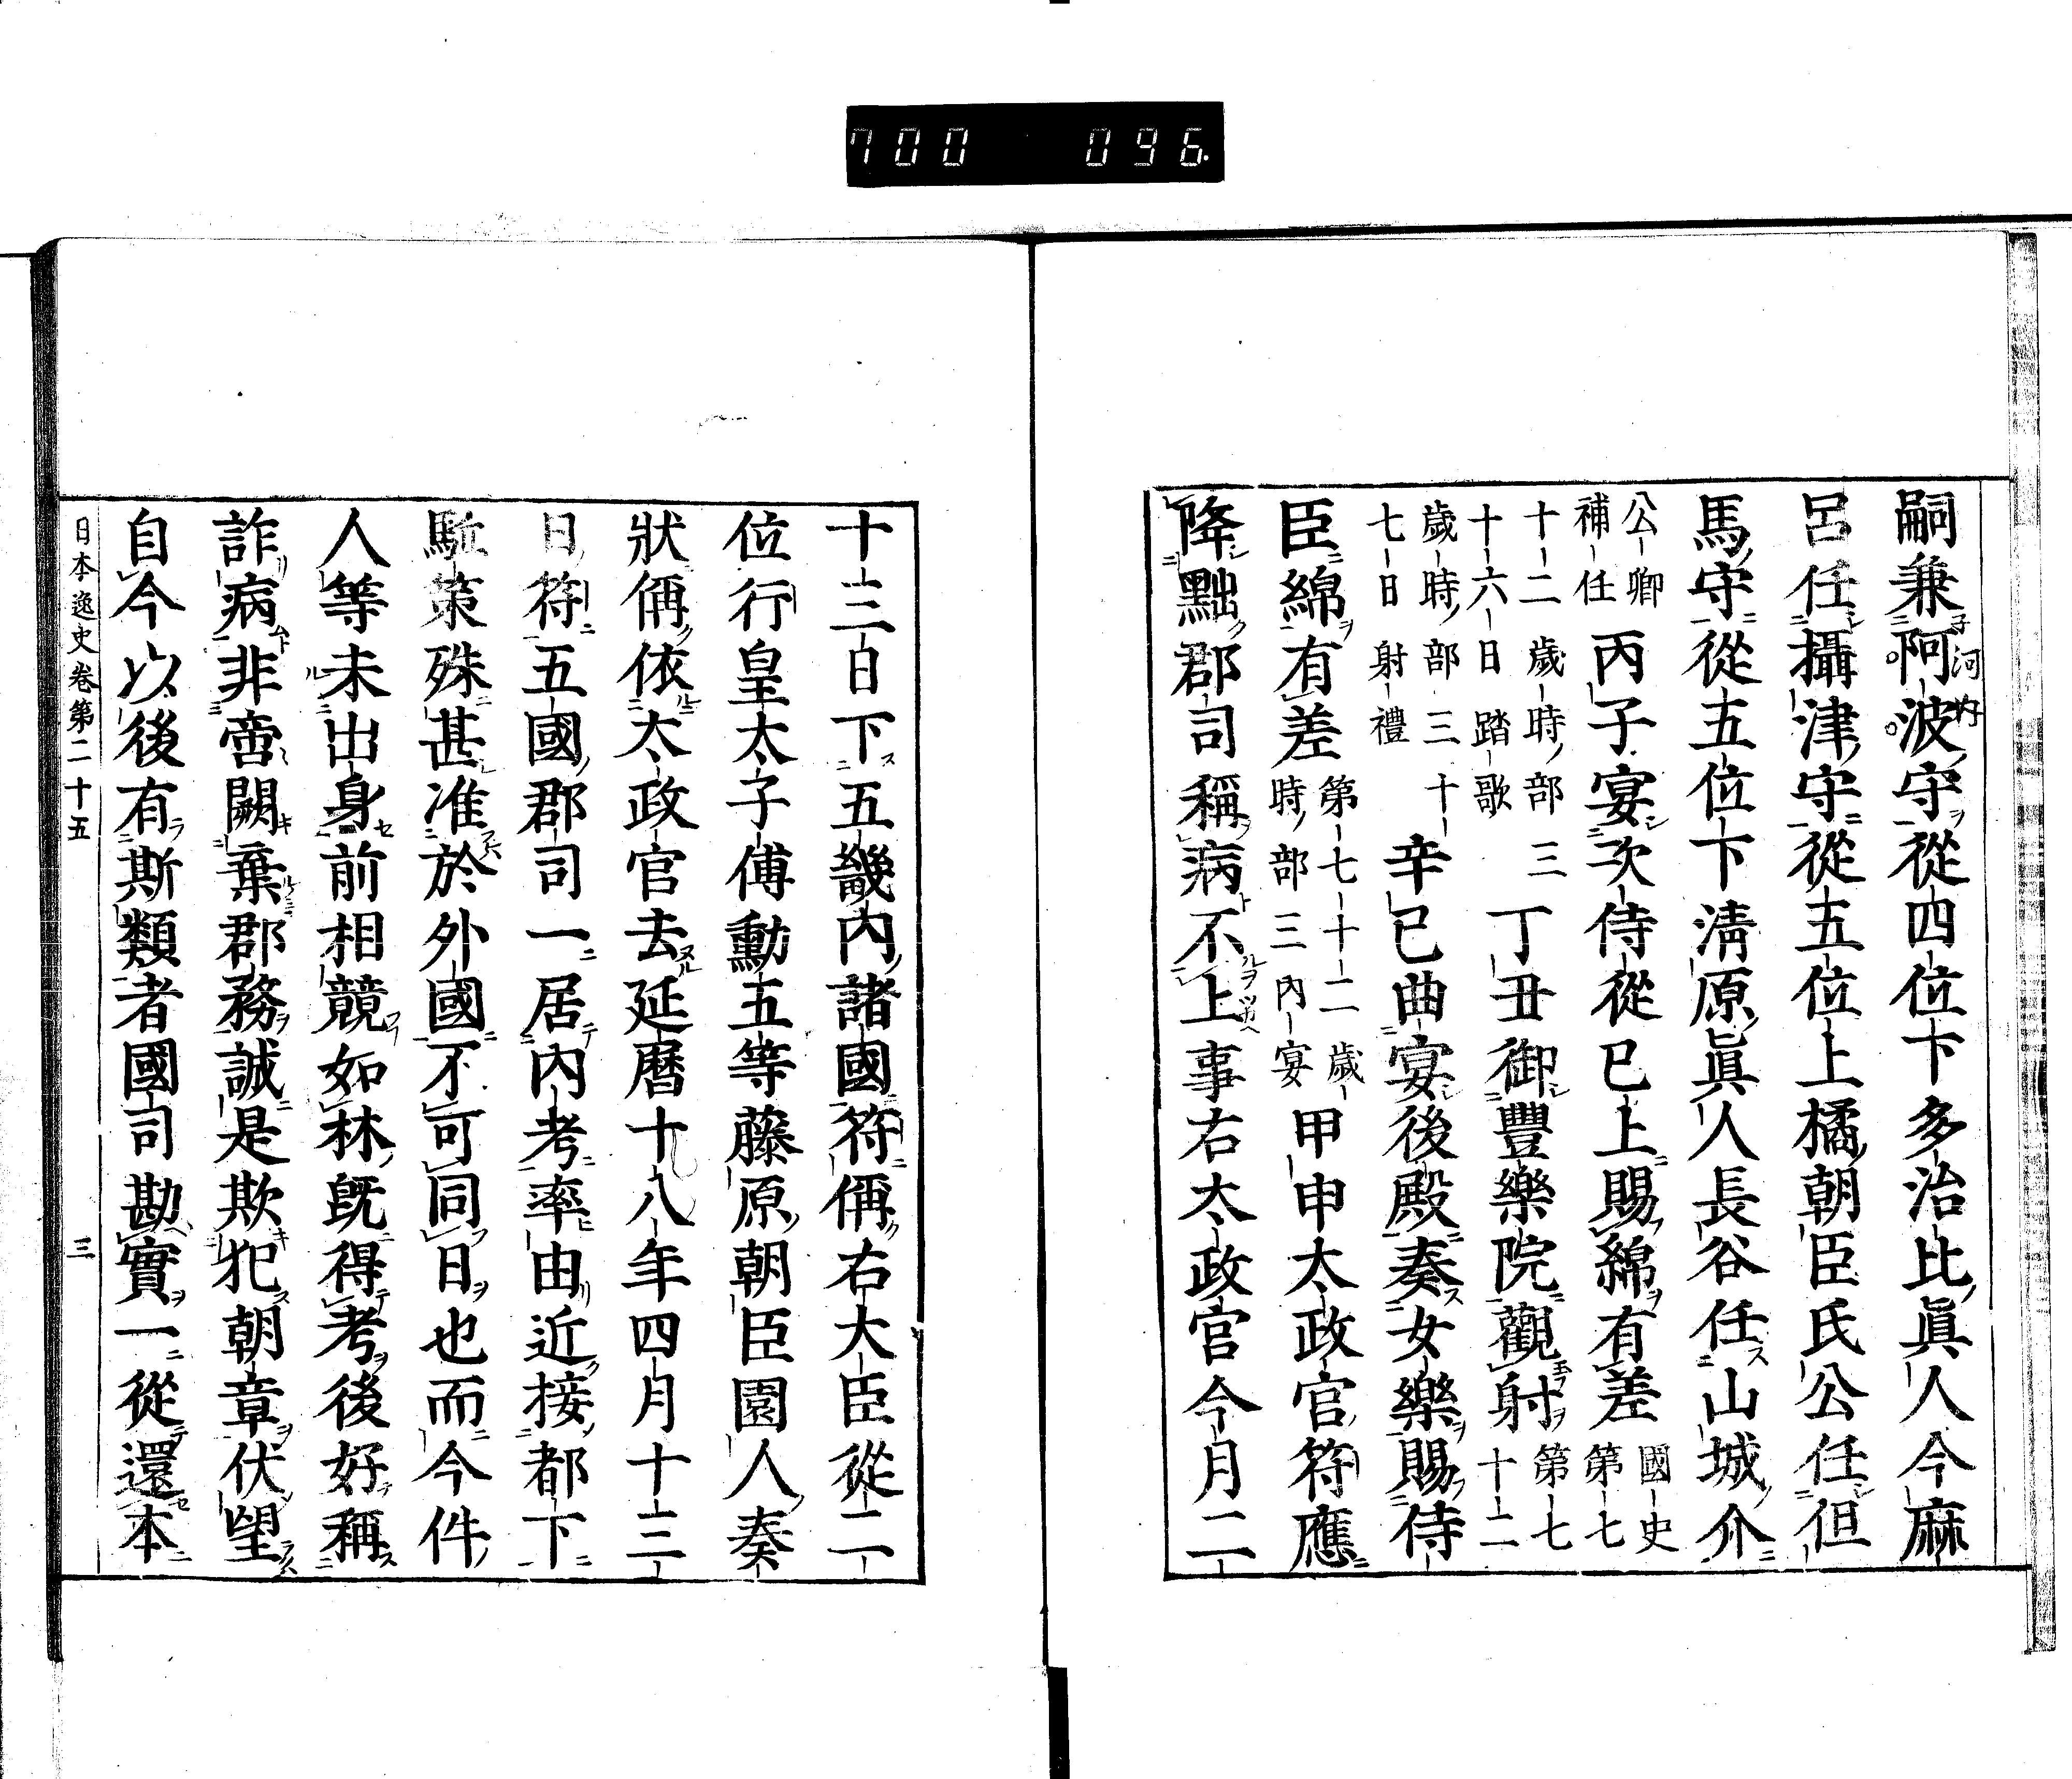 700 096.
嗣兼阿波守從四位下多治比眞人今麻
河内
呂任攝津守從五位上橘朝臣氏公任但
馬守從五位下淸原眞人長谷任山城介
公卿
補任
丙子宴次侍從已上賜綿有差
國史
第七
十二歲時部三
十六日踏歌
丁丑御豐樂院觀射
第七
十二
歲時部三十
七日射禮
辛已曲宴後殿奏女樂賜侍
臣綿有差
第七十二歲
時部三內宴
甲申太政官符應
降黜郡司稱病不上事右太政官今月二
十三日下五畿內諸國符偁右大臣從二
位行皇太子傅勳五等藤原朝臣園人奏
狀偁依太政官去延曆十八年四月十三
日符五國郡司一居內考率由近接都下
駈策殊甚准於外國不可同日也而今件
人等未出身前相競如林旣得考後好稱
詐病非啻闕棄郡務誠是欺犯朝章伏望
自今以後有斯類者國司勘實一從還本
日本逸史卷第二十五
三